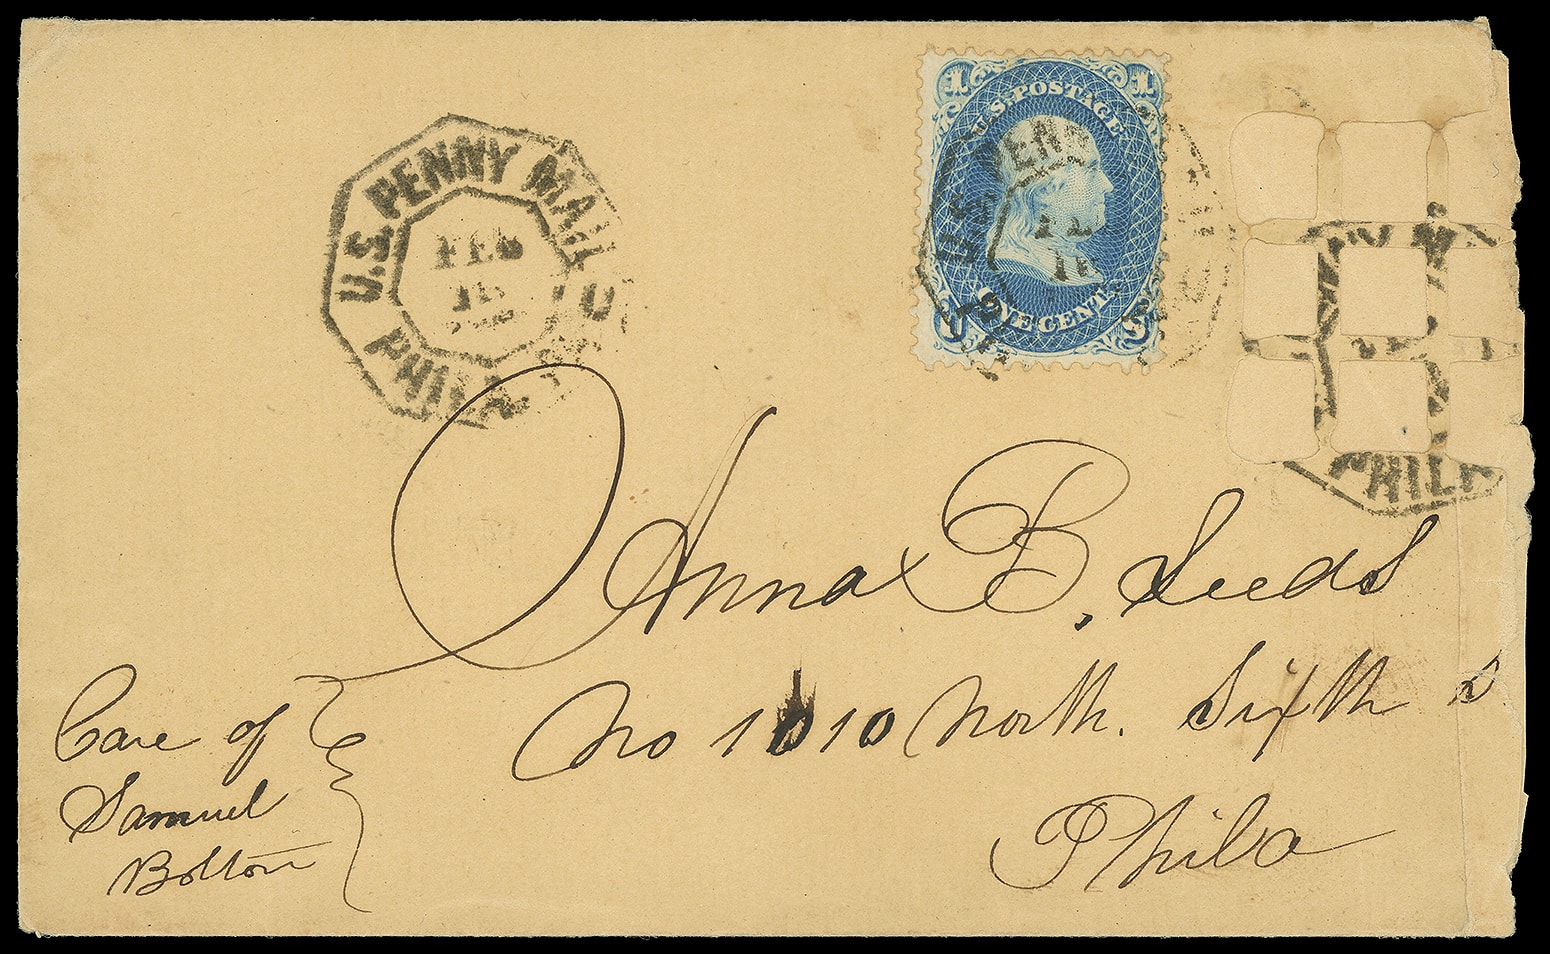 U.S. PENNY MAIL
FEB
PHILA
1 1
U.S. POSTAGE
ONE CENT.
U S
U.S. PENN
PHILA
Anna B. Leeds
No 1010 North. Sixth S
Phila
Care of
Samuel
Bolton